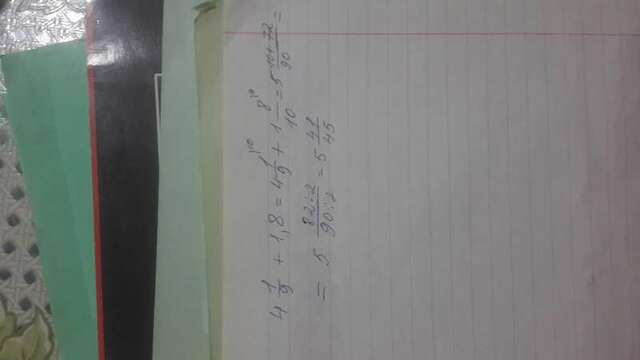 4 1/9 + 1,8 = 4 1/9 |10 + 1 8/10 |9 = 5 10+72/90 =
= 5 82:2/90:2 = 5 41/45